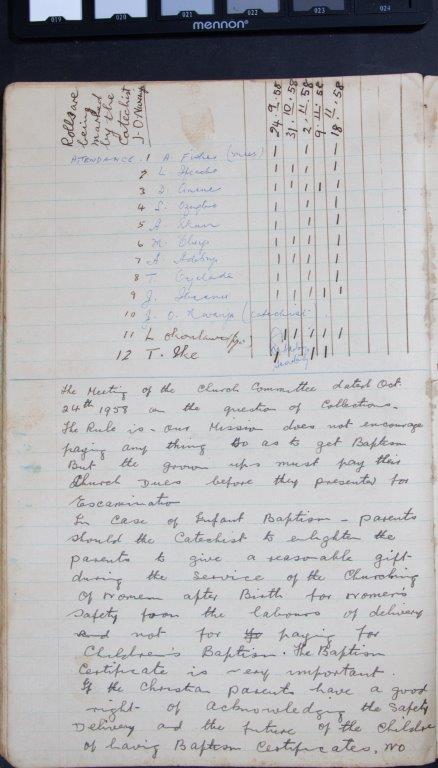 019 020 021 022 023 024
mennon
Rolls are
being
marked
by the
Catechist
J. O. Nwanya
24. 9. 58
31. 10. 58
2. 11. 58
9. 11. 58
18. 11. 58
ATTENDANCE. 1 A. Fisher
2 L.
3 D.
4 S.
5 A.
6 M.
7 A.
8 T.
9 J.
10 J. O. Nwanya (Catechist
11 L
12 T. Ike
The Meeting of the Church Committee dated Oct
24th 1958 on the question of Collections.
The Rule is - Our Mission does not encourage
paying any thing so as to get Baptism
But the grown ups must pay their
Church Dues before they presented for
Escamination
In Case of Infant Baptism - parents
should the Catechist to enlighten the
parents to give a reasonable gift
during the Service of the Churching
Of Women after Birth for women's
Safety from the labours of delivery
and not for paying for
Children's Baptism. The Baptism
Certificate is very important.
If the Christian parents have a good
right of acknowledging the Safety
Delivery and the future of the Children
of having Baptism Certificates, no